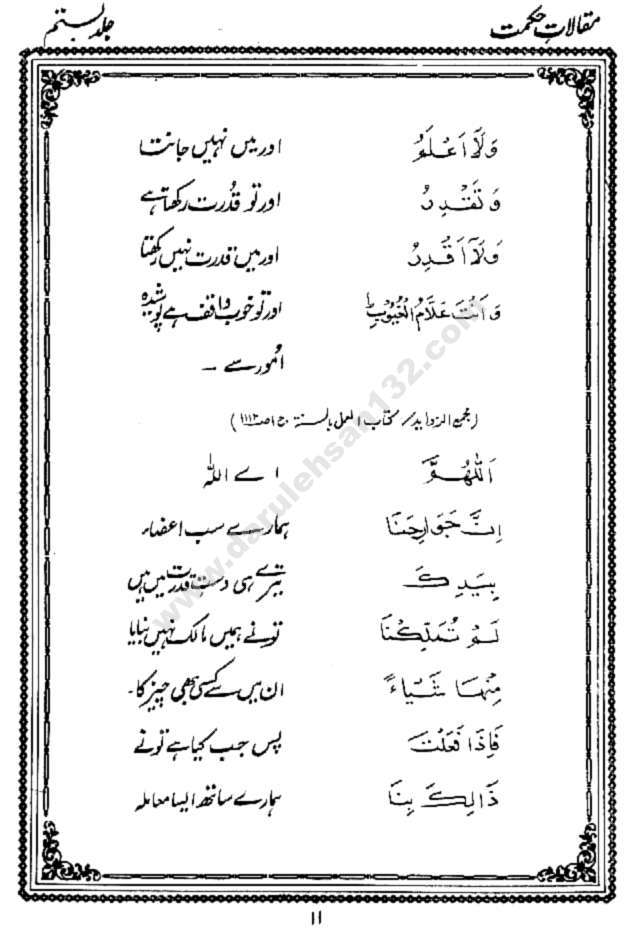 مقالاتِ حکمت جلد بستم
وَلَا اَعْلَمُ اور میں نہیں جانتا
وَتَقْدِرُ اور تو قُدرت رکھتا ہے
وَلَآ اَقْدِرُ اور میں قدرت نہیں رکھتا
وَاَنْتَ عَلَّامُ الْغُیُوْبِ ط اور تو خوب واقف ہے پوشیدہ
اُمور سے ۔
(مجمع الزوايد / کتاب العمل بالسنۃ ج ۱ ص ۱۱۱۲)
اَللّٰهُمَّ اے اللہ
اِنَّ جَوَارِحَنَا ہمارے سب اعضاء
بِیَدِكَ تیرے ہی دست قدرت میں ہیں
لَمْ تُمَلِّكْنَا تو نے ہمیں مالک نہیں بنایا
مِنْهَا شَیْاءً ان میں سے کسی بھی چیز کا۔
فَاِذَا فَعَلْتَ پس جب کیا ہے تو نے
ذَالِكَ بِنَا ہمارے ساتھ ایسا معاملہ
۱۱
www.darulehsan132.com